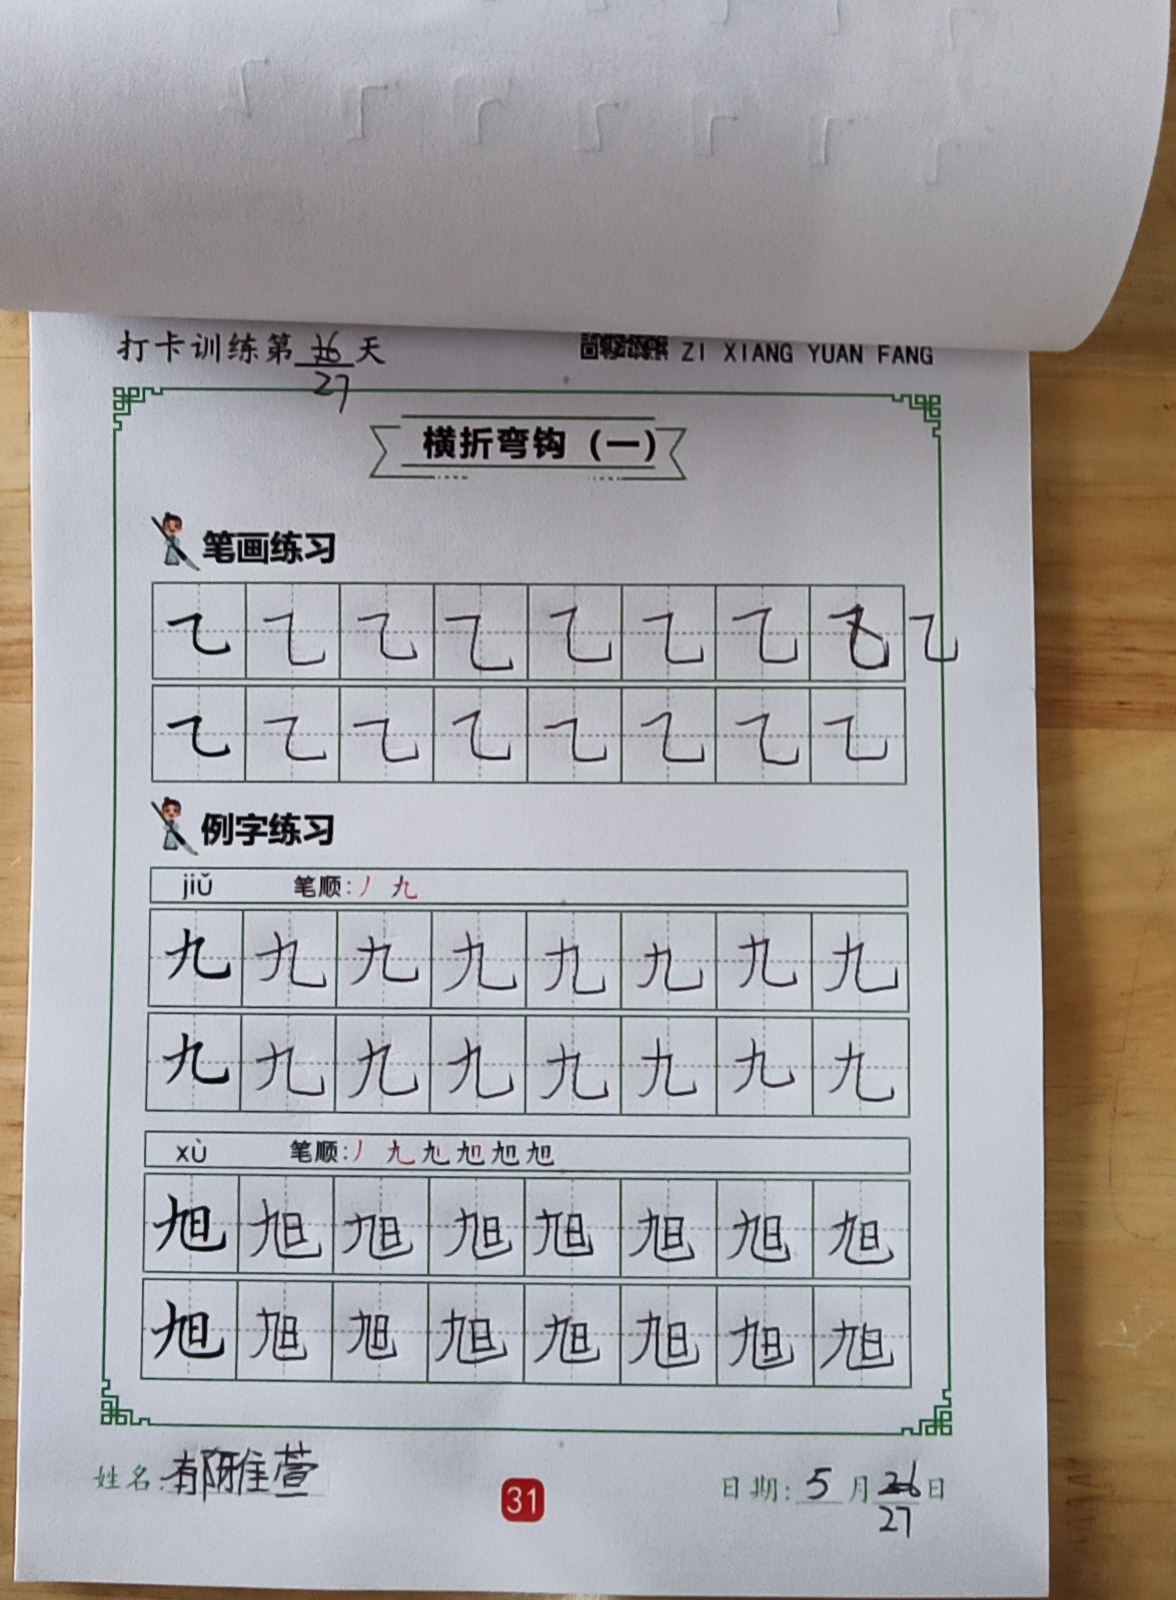 打卡训练第16天 ZI XIANG YUAN FANG
27
横折弯钩（一）
笔画练习
乙 乙 乙 乙 乙 乙 乙 乙
乙 乙 乙 乙 乙 乙 乙 乙
例字练习
jiǔ 笔顺：丿 九
九 九 九 九 九 九 九 九
九 九 九 九 九 九 九 九
xù 笔顺：丿 九
旭 旭 旭 旭 旭 旭 旭 旭
旭 旭 旭 旭 旭 旭 旭 旭
姓名：郁雅萱 31 日期：5月26日
27